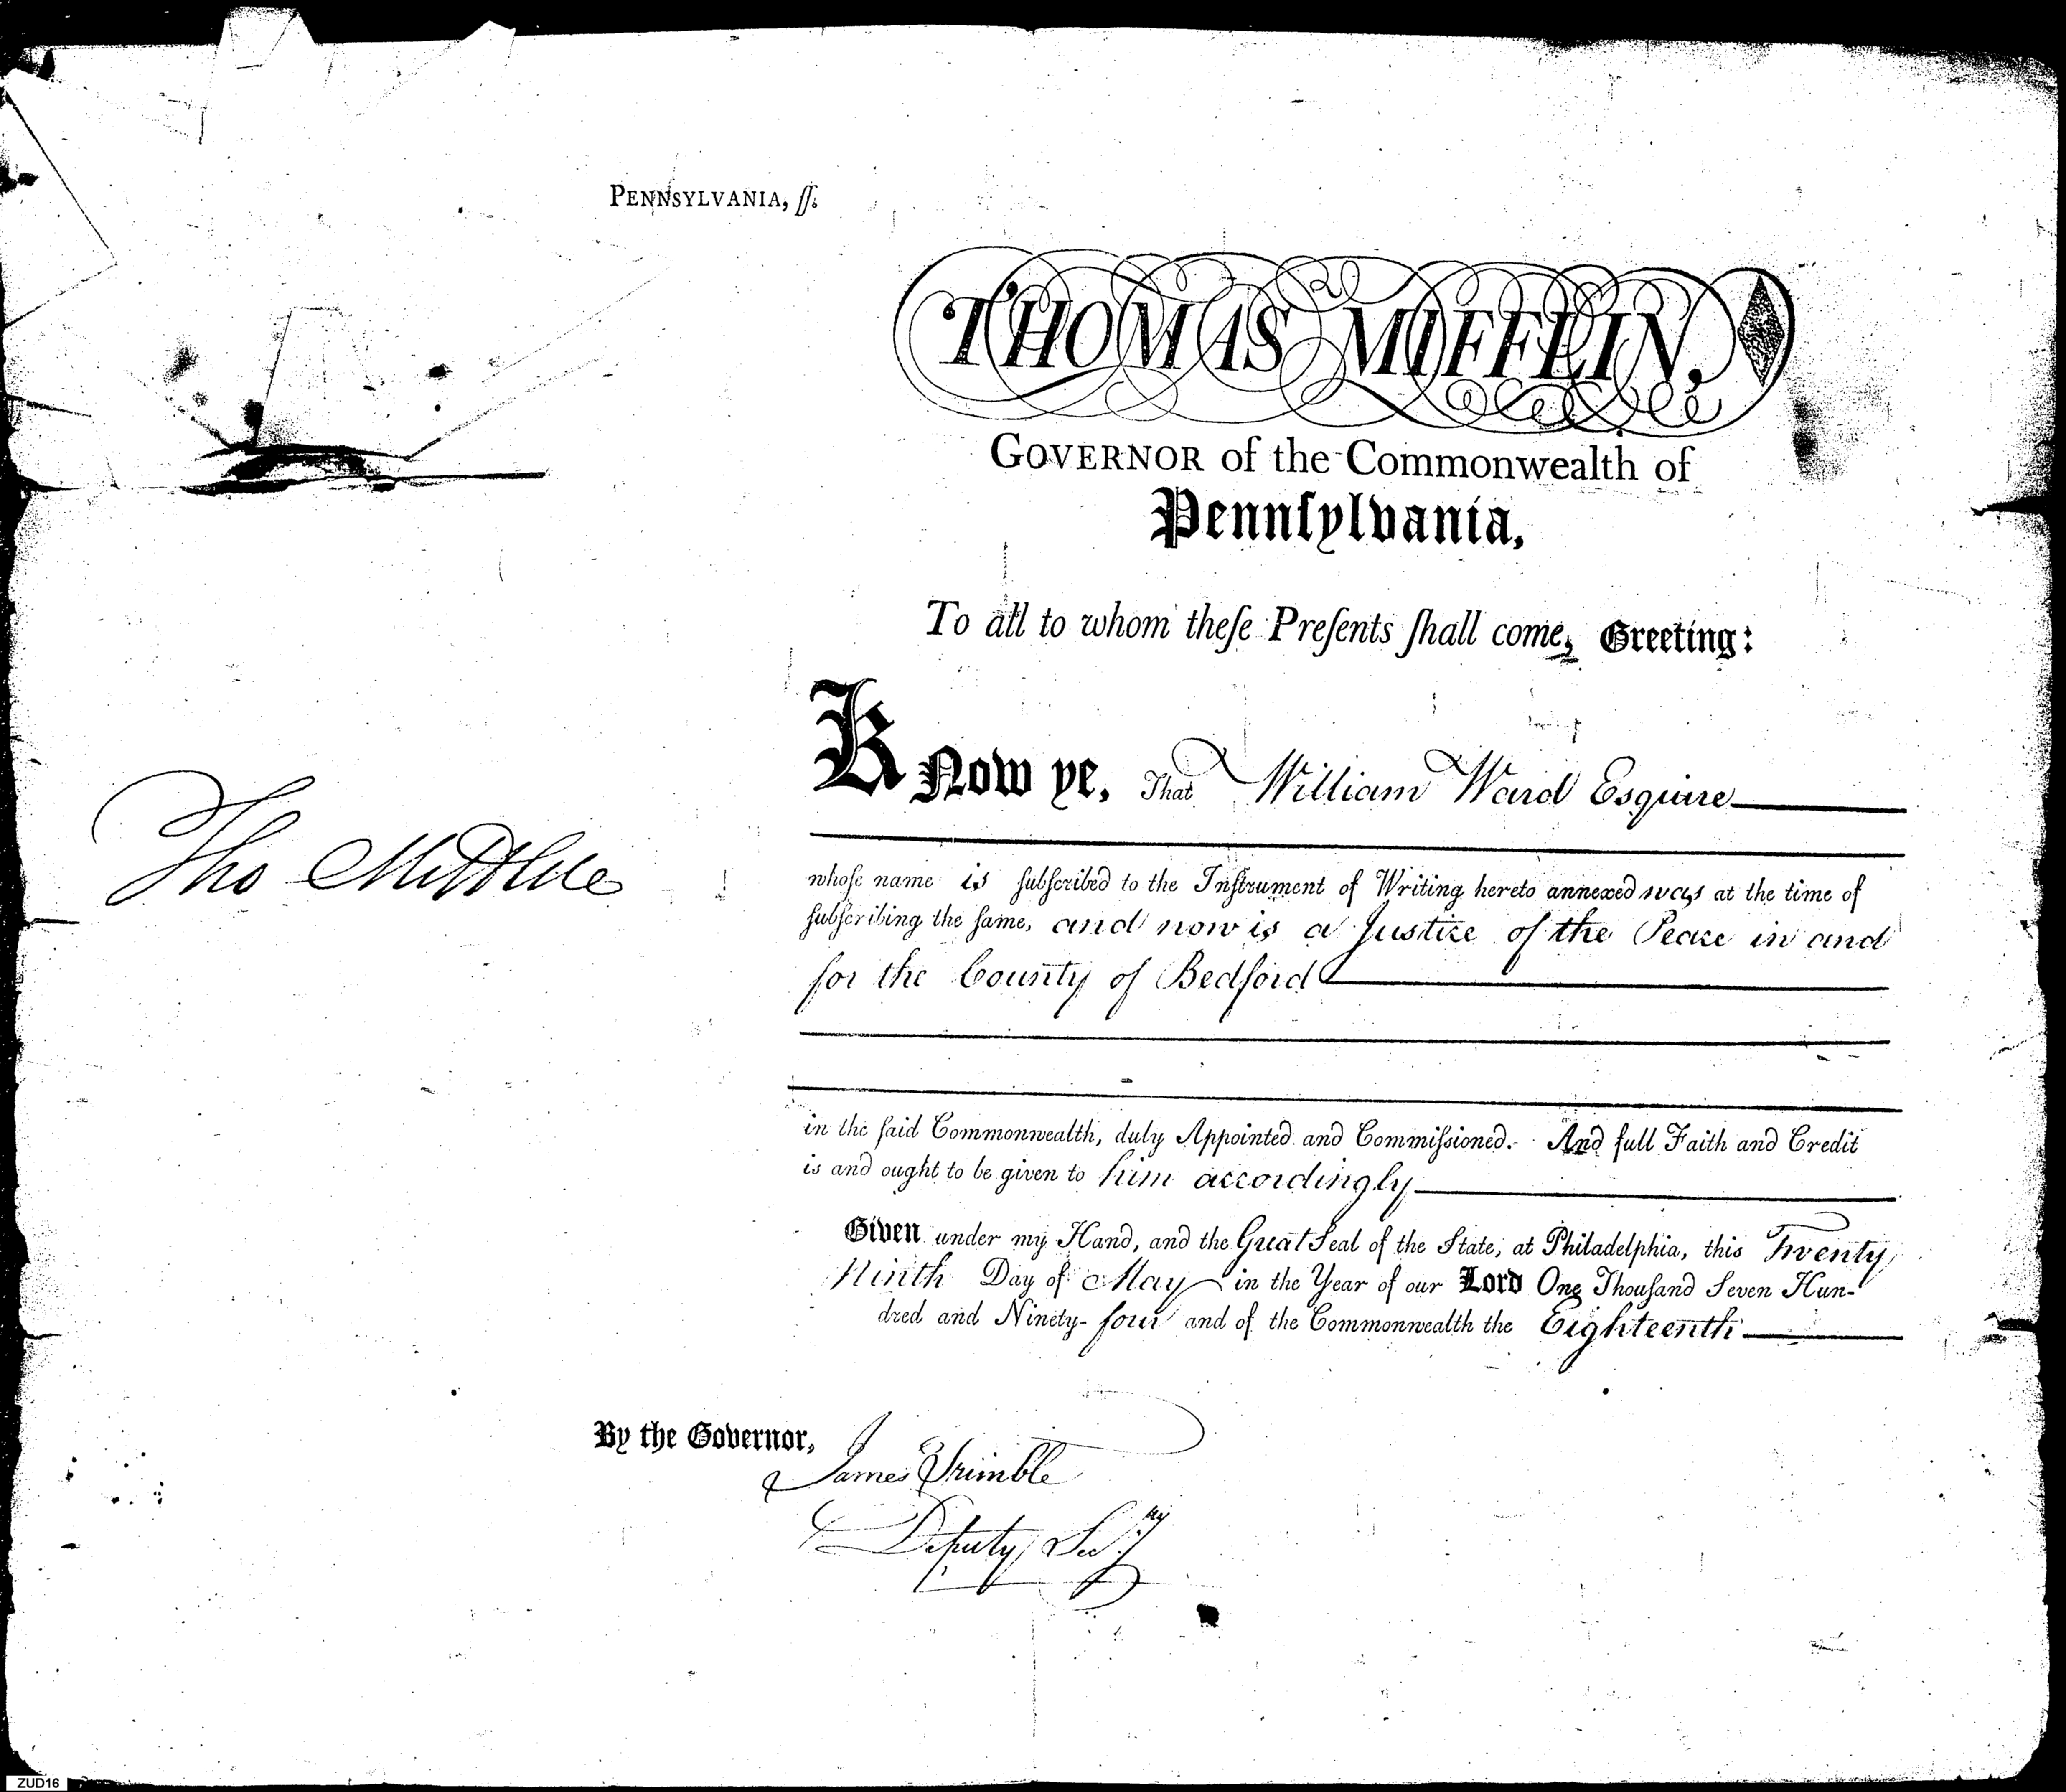 PENNSYLVANIA, ſſ.
THOMAS MIFFLIN,
GOVERNOR of the Commonwealth of
Pennſylvania,
To all to whom theſe Preſents ſhall come, Greeting:
KNow ye, That William Ward Esquire
Tho Mifflin
whoſe name is ſubſcribed to the Inſtrument of Writing hereto annexed was at the time of
ſubſcribing the ſame, and now is a Justice of the Peace in and
for the County of Bedford
in the ſaid Commonwealth, duly Appointed and Commiſsioned. And full Faith and Credit
is and ought to be given to him accordingly
Given under my Hand, and the Great Seal of the State, at Philadelphia, this Twenty
Ninth Day of May in the Year of our Lord One Thouſand Seven Hun-
dred and Ninety-four and of the Commonwealth the Eighteenth
By the Governor,
James Trimble
Deputy Secry
ZUD16